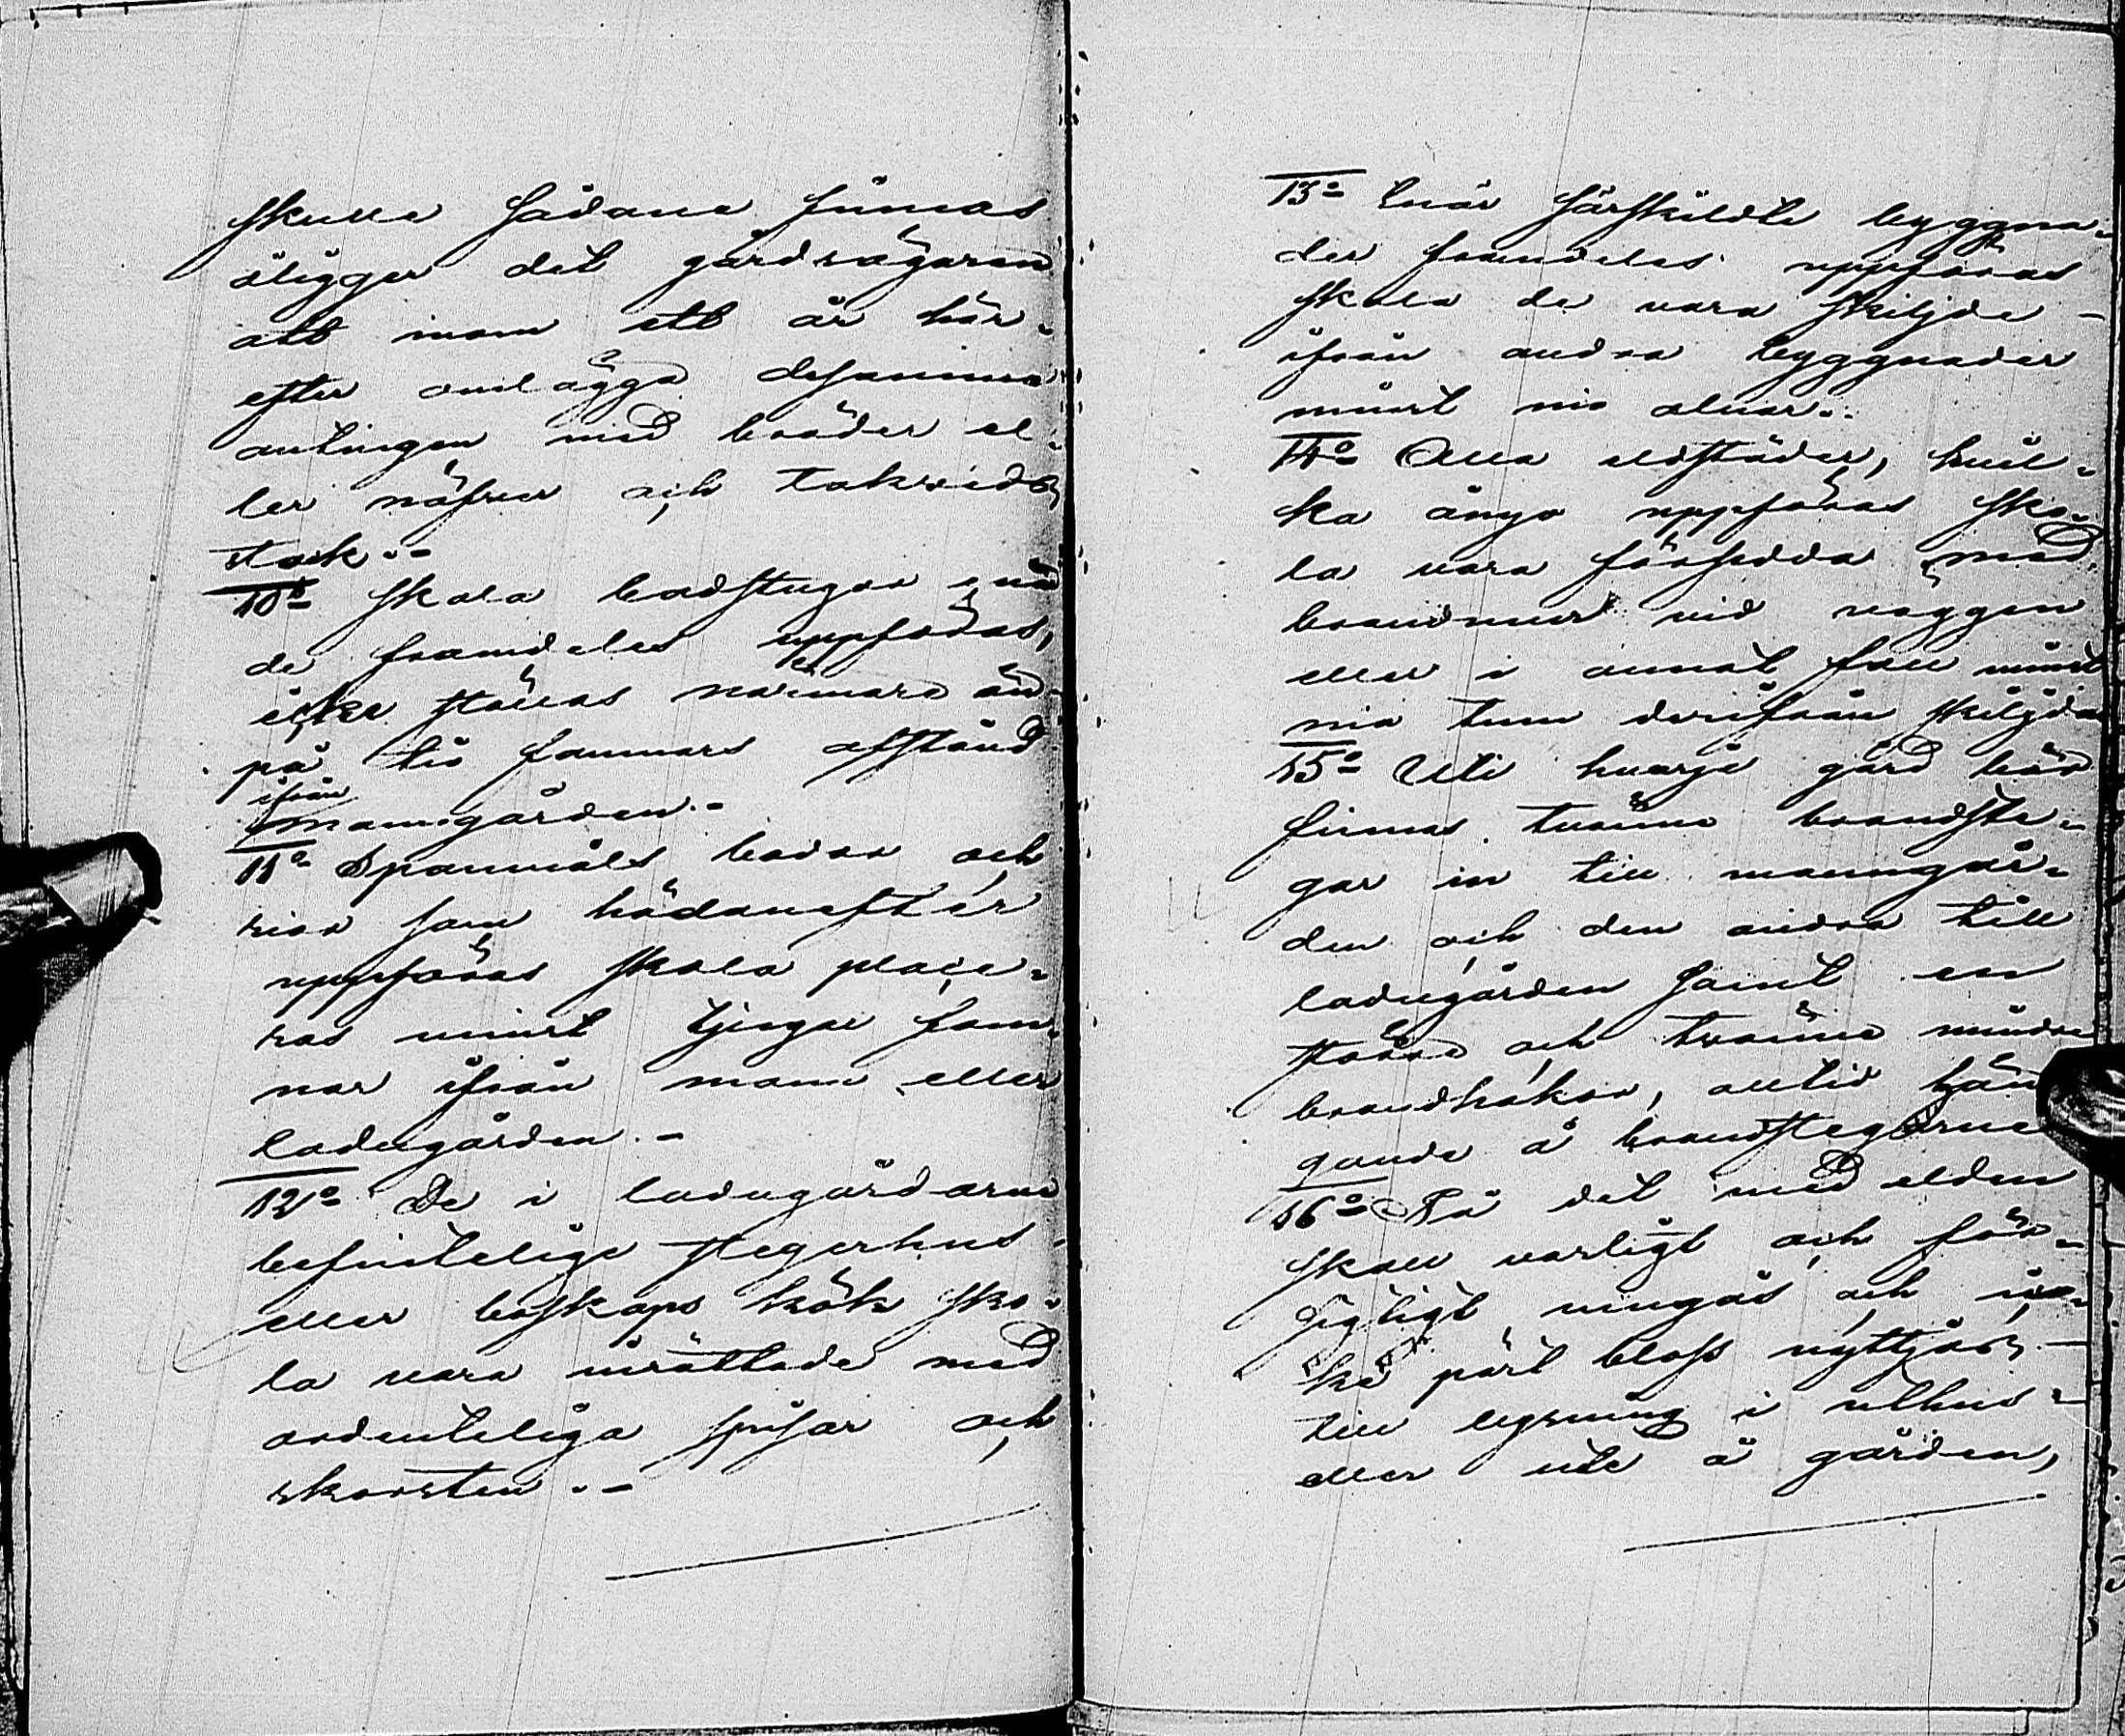 skulle sådane finnas
åligger det gårdsägaren
att inom ett år här-
efter omlägga desamma
antingen med bräder el-
ler näfver och takveds
stock.-
10º Skola badstugor, när
de framdeles uppföras,
icke ställas närmare än
på tio famnars afstånd
ifrån
manngården.-
11º Spannmåls bodar och
rior som hädanefter
uppföras skola place-
ras minst tjugu fam-
nar ifrån mann eller
ladugården.-
12º De i ladugårdarne
befintelige stegerhus
eller boskaps kök sko-
la vara inrättade med
ordenteliga spisar och
skorsten.-
13º Enär särskildte byggna-
der framdeles uppföras
skola de vara skiljde
ifrån andra byggnader
minst nio alnar.-
14º Alla eldstäder, hvil-
ka ånyo uppföras sko-
la vara försedda med
brandmur vid väggen
eller i annat fall minst
nio tum derifrån skiljda
15º Uti hvarje gård bör
finnas tvänne brandste-
gar in till manngår-
den och den andra till
ladugården samt en
större och tvänne mindre
brandhakar, alltid hän
gande å brandstegarne
16º På det med elden
skall varligt och för-
sigtigt umgås och ic-
ke pärt bloss nyttjas
till lysning i uthus
eller ute å gården,